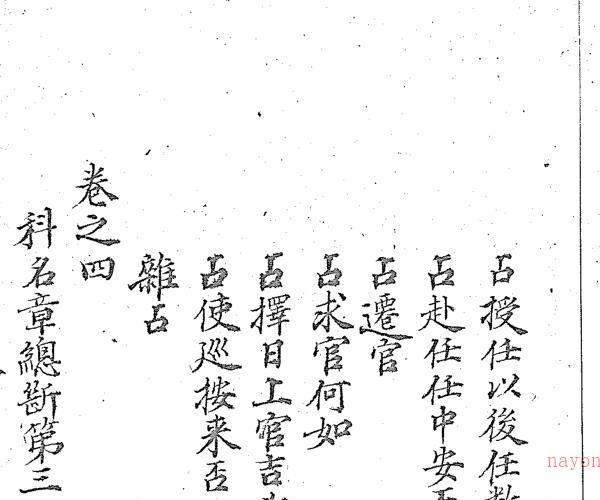 占授任以後任數
占赴任任中安
占遷官
占求官何如
占擇日上官吉
占使巡按来否
雜占
卷之四
科名章總斷第三
nayon